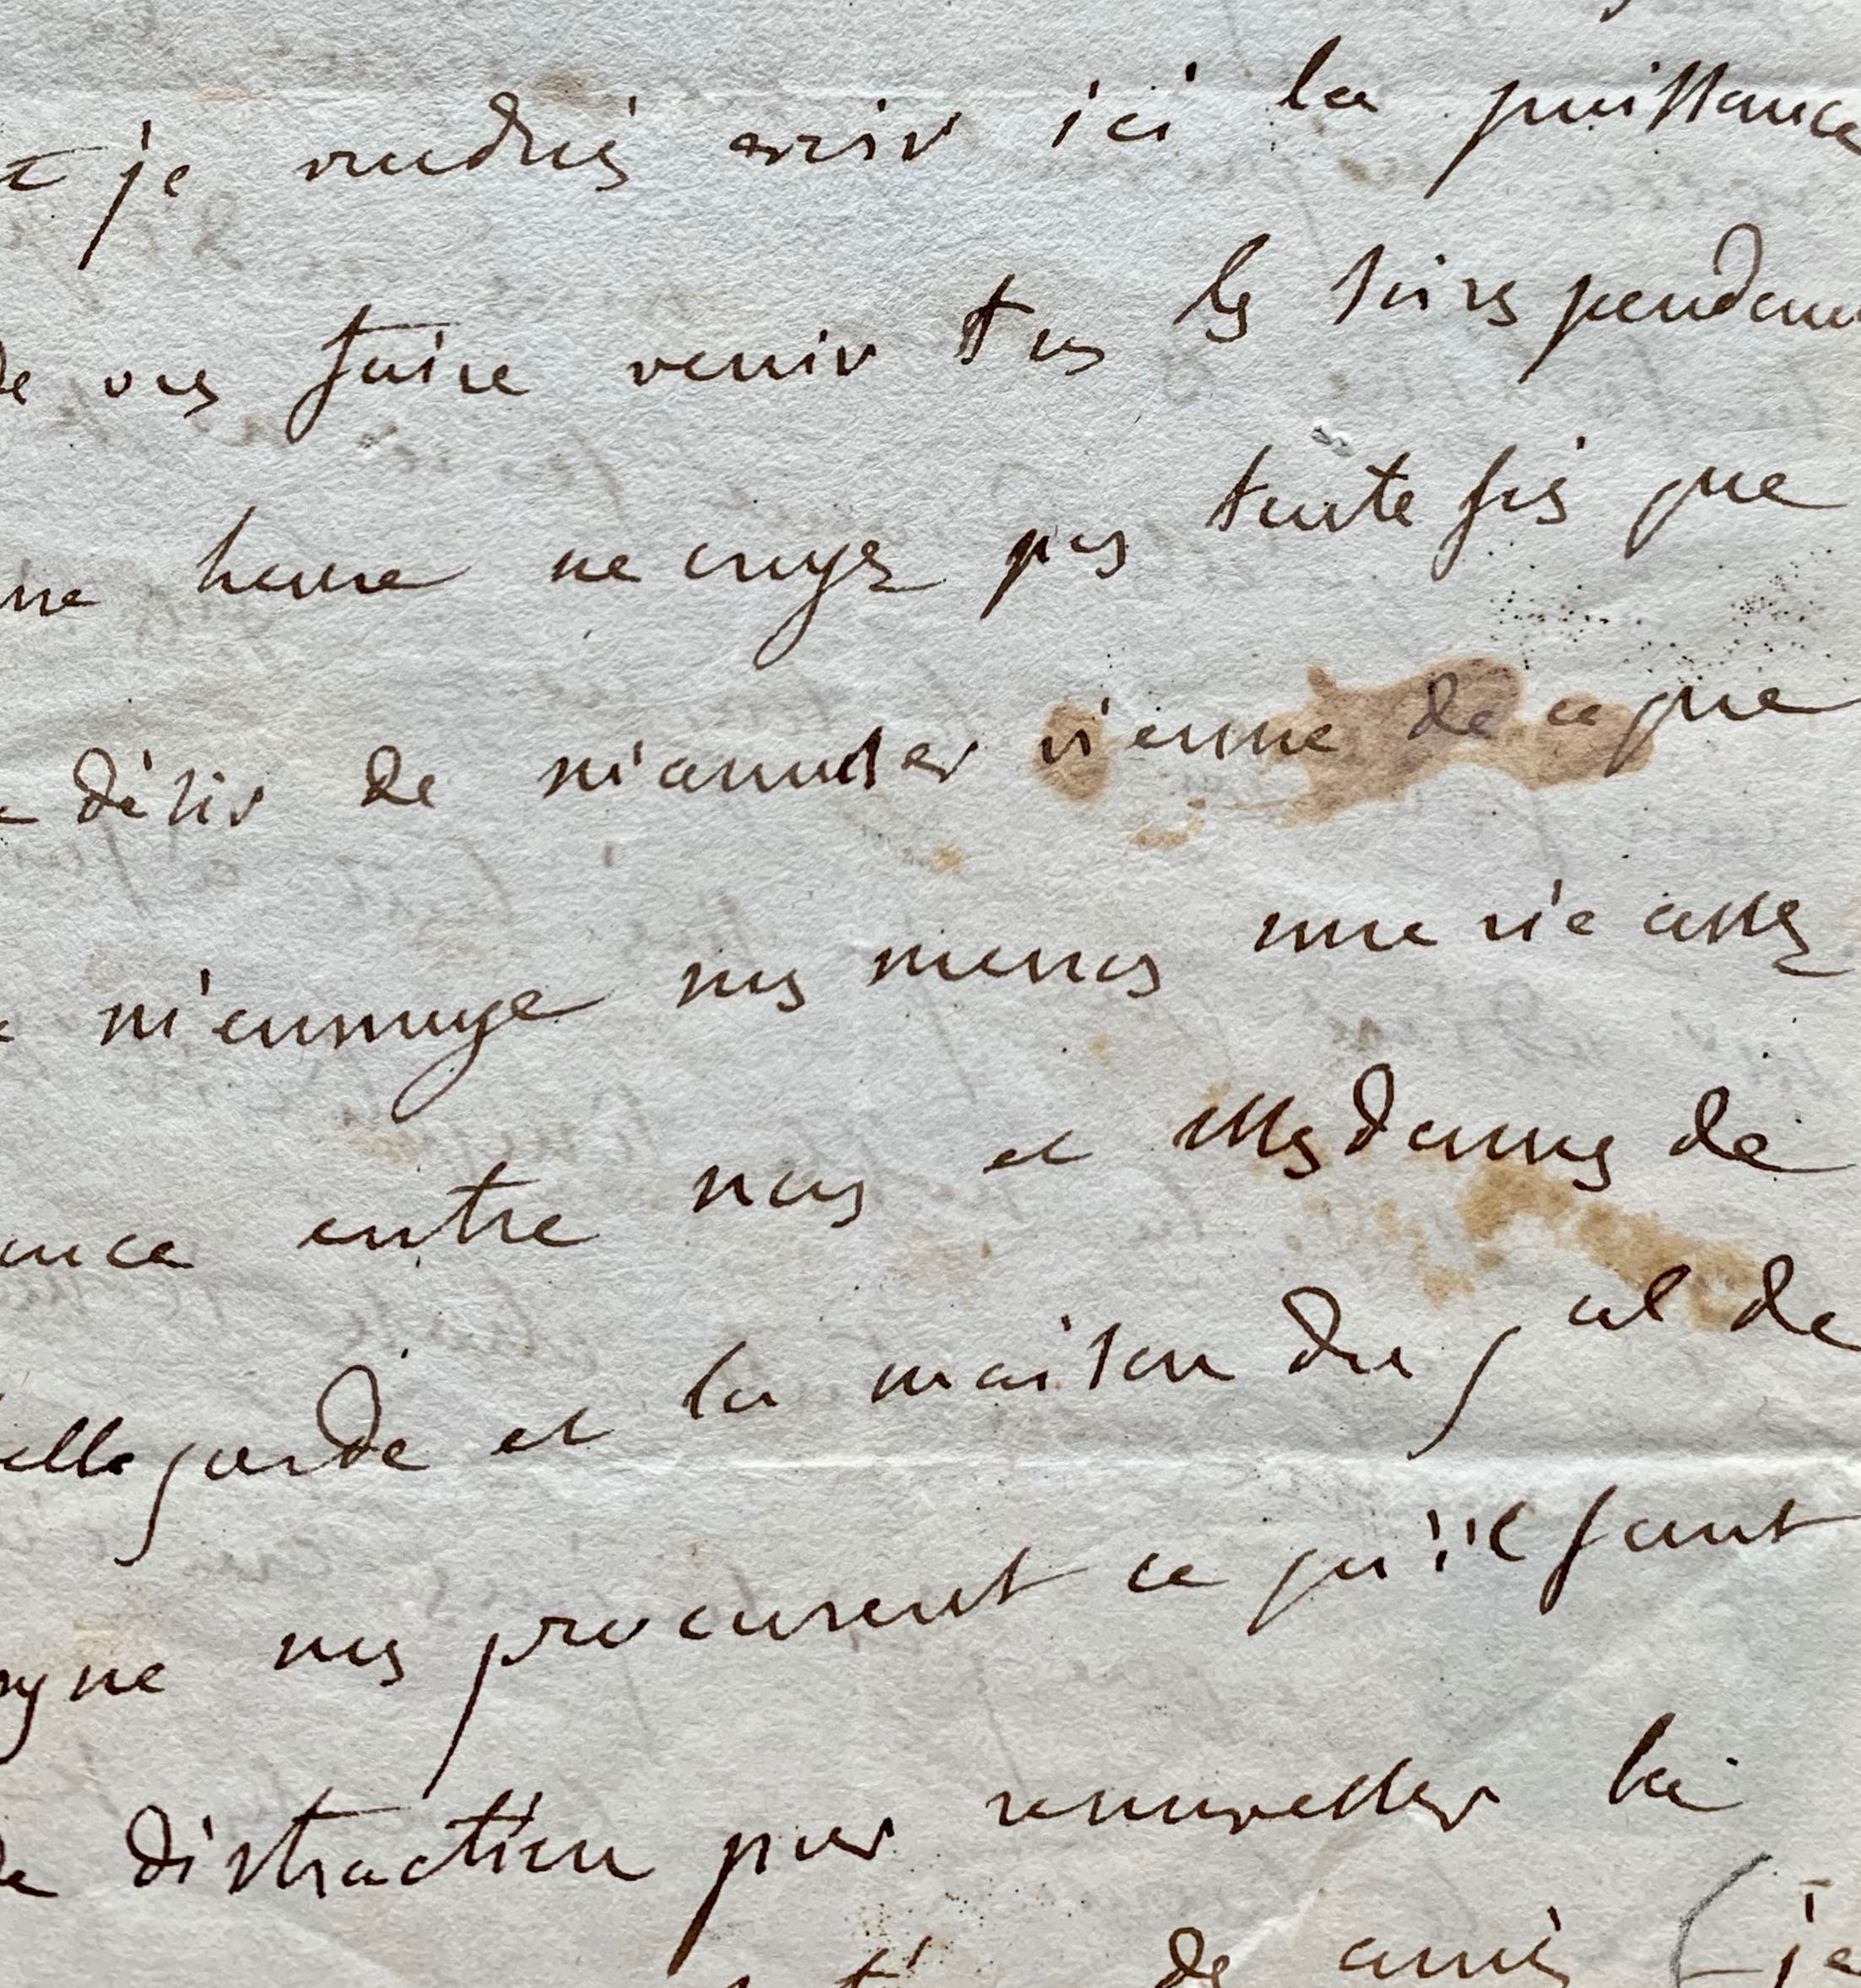 je voudrois avoir ici la puissance
de vous faire venir tous les soirs pendant
une heure ne croyez pas toute fois que
désir de m'amuser vienne de ce que
m'ennuye nous menons une vie assez
entre nous et Mesdames de
ellegarde et la maison du gal de
nous procurent ce qu'il faut
de distraction pour renouveller la
de amis (je